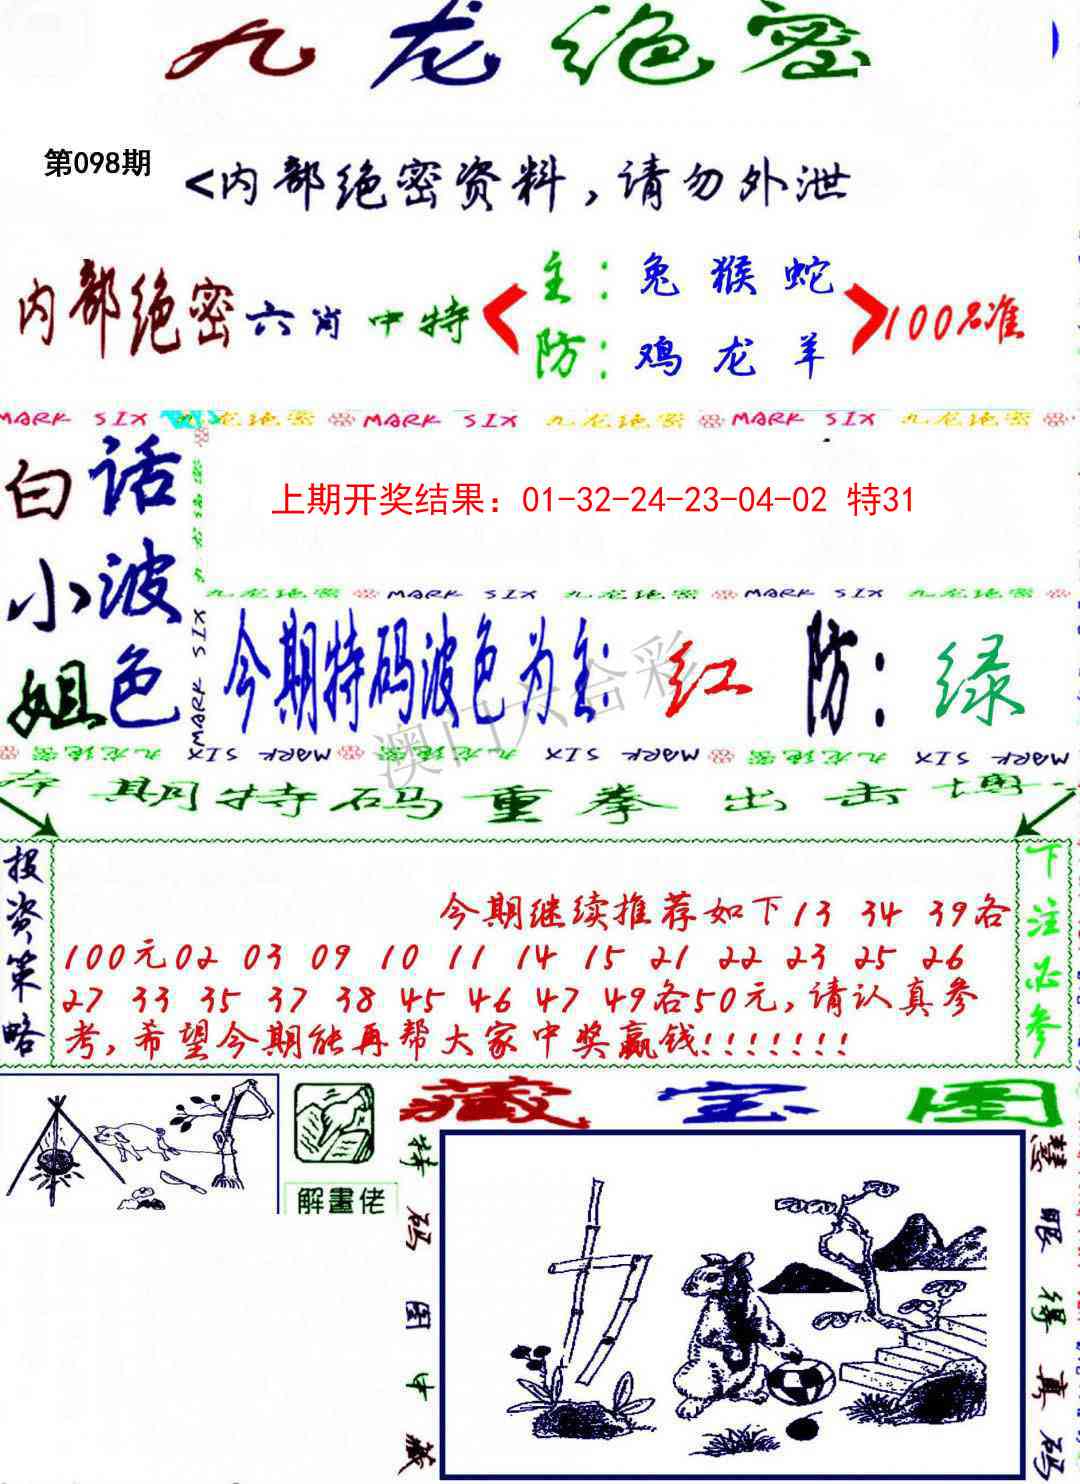 九龙绝密
第098期
<内部绝密资料,请勿外泄
内部绝密六肖中特
主：兔 猴 蛇
防：鸡 龙 羊
100%准
MARK SIX 九龙绝密 MARK SIX 九龙绝密 MARK SIX 九龙绝密
白小姐
话波色
九龙绝密 MARK SIX
上期开奖结果：01-32-24-23-04-02 特31
九龙绝密 MARK SIX 九龙绝密 MARK SIX 九龙绝密
今期特码波色为主：红 防：绿
澳门六合彩
MARK SIX 九龙绝密 MARK SIX 九龙绝密 MARK SIX 九龙绝密
今期特码重拳出击博
投资策略
今期继续推荐如下13 34 39各
100元02 03 09 10 11 14 15 21 22 23 25 26
27 33 35 37 38 45 46 47 49各50元,请认真参
考,希望今期能再帮大家中奖赢钱!!!!!!!
下注必参
解畫佬
藏宝图
特码图中藏
慧眼得真码